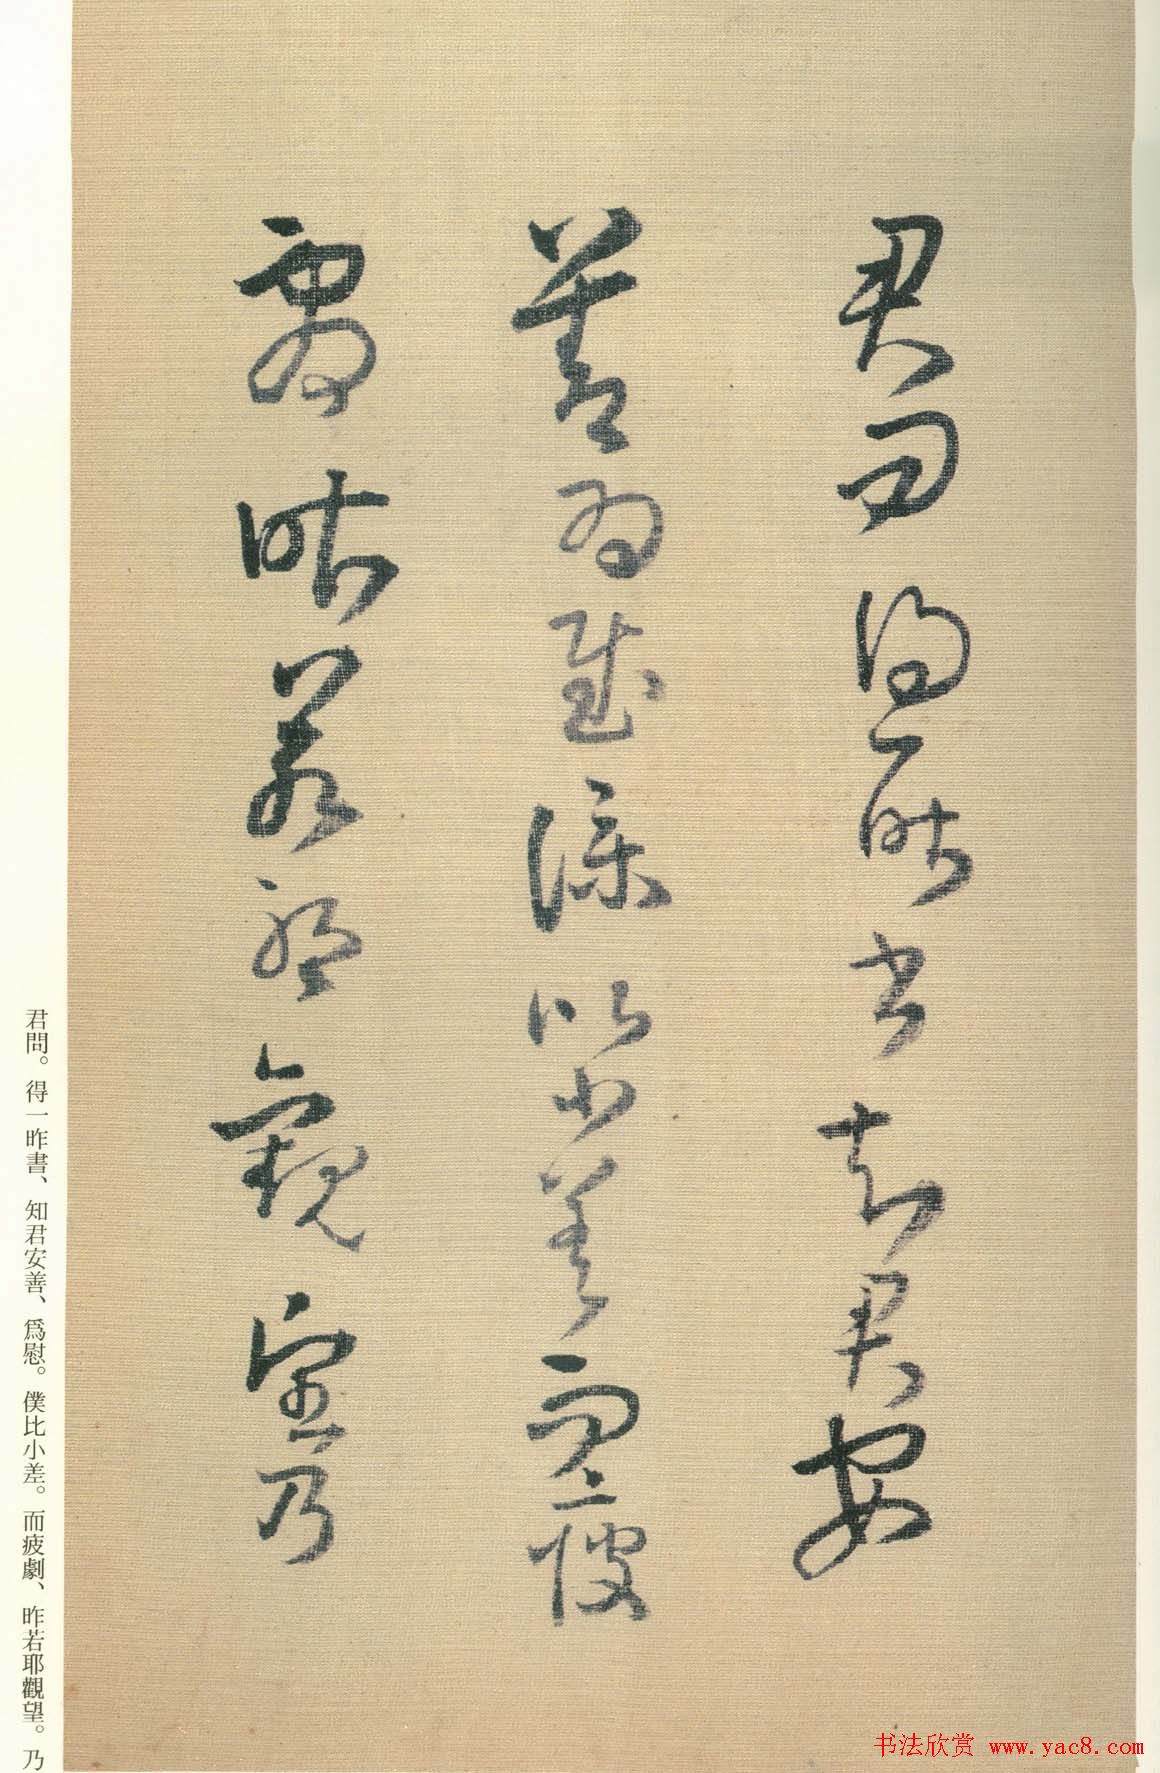 君問得一昨書知君安
善為慰僕比小差而疲
劇昨若耶觀望乃
君問。得一昨書、知君安善、爲慰。僕比小差。而疲劇、昨若耶觀望。乃
书法欣赏 www.yac8.com